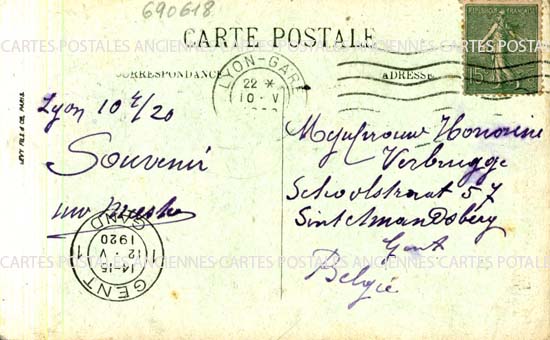 690618
CARTE POSTALE
CARTES POSTALES ANCIENNES CARTES POSTALES ANCIENNES CARTES POSTALES
CORRESPONDANCE
ADRESSE
LYON-GARE
22 *
10 · V
REPUBLIQUE FRANÇAISE
15c
LEVY FILS & CIE, PARIS
Lyon 10 5/20
Souvenir
Mejufvrouw Honorine
Verbrugge
Schoolstraat 57
Sint Amandsberg
Gent
België
GENT
GAND
14-15
12 · V
1920
CARTES POSTALES ANCIENNES CARTES POSTALES ANCIENNES CARTES POSTALES